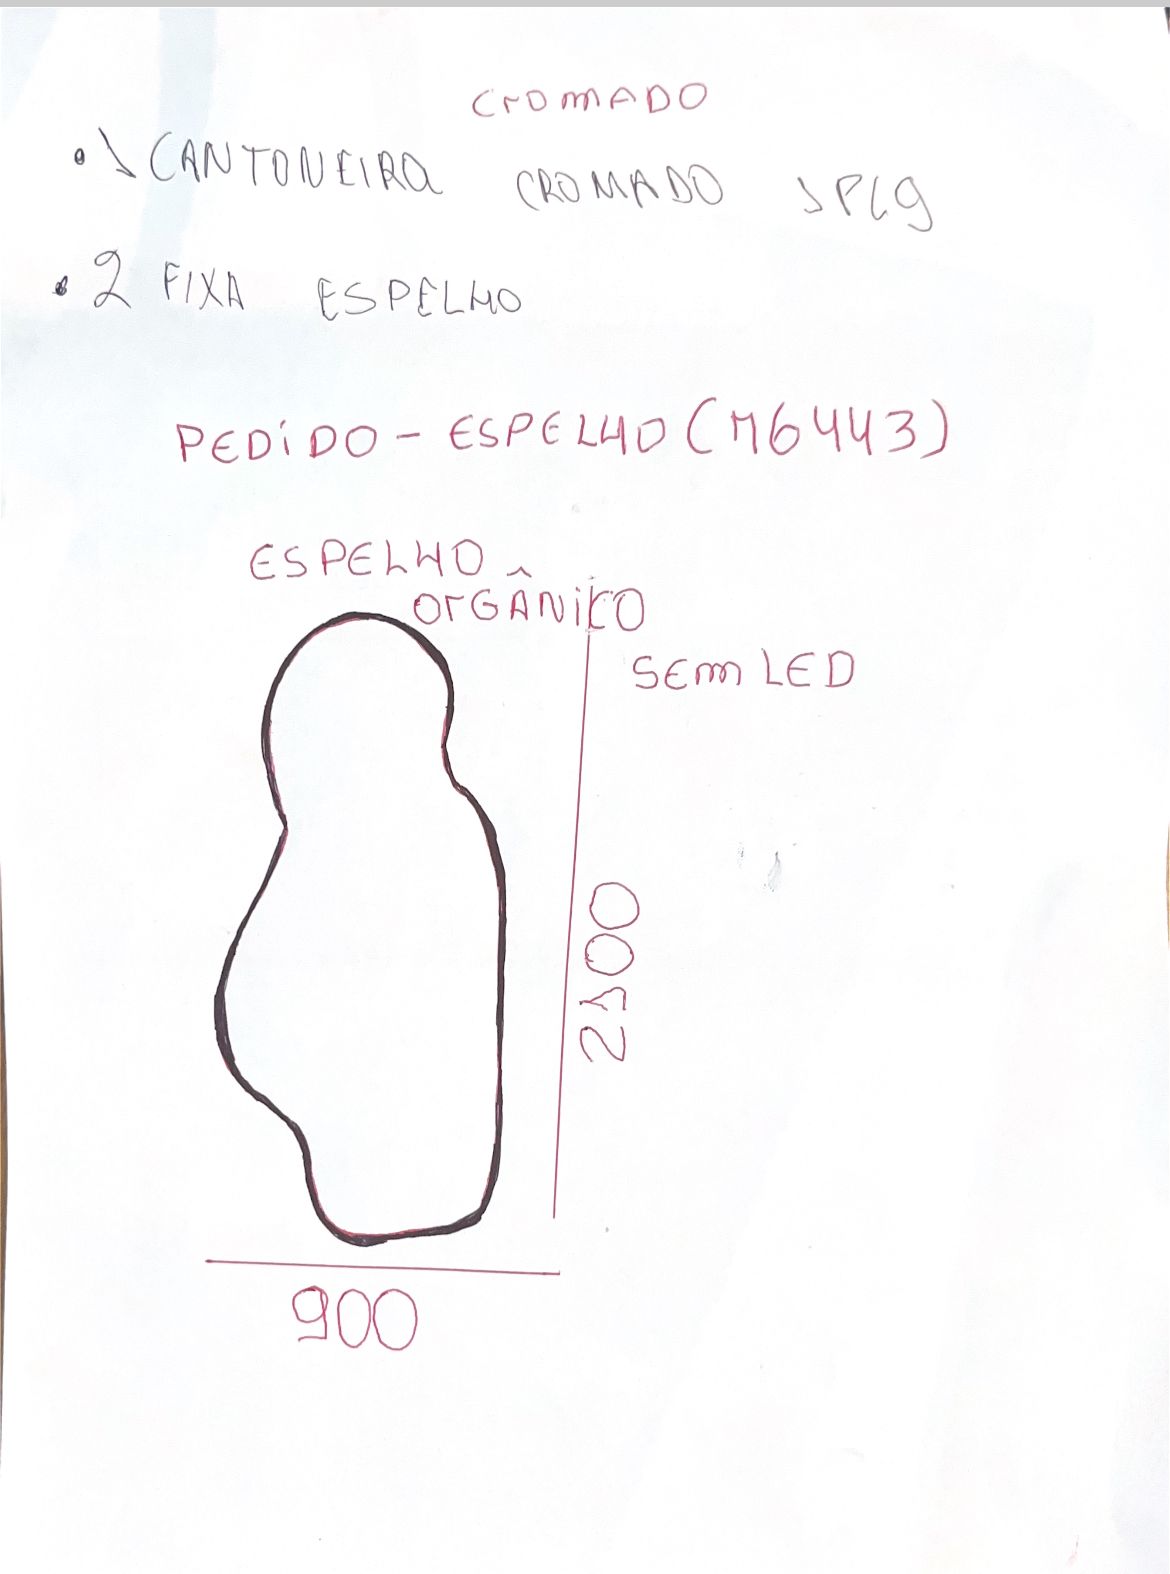 CROMADO
• 1 CANTONEIRA CROMADO 1 PLG
• 2 FIXA ESPELHO
PEDIDO - ESPELHO (M6443)
ESPELHO
ORGÂNICO
SEM LED
2100
900